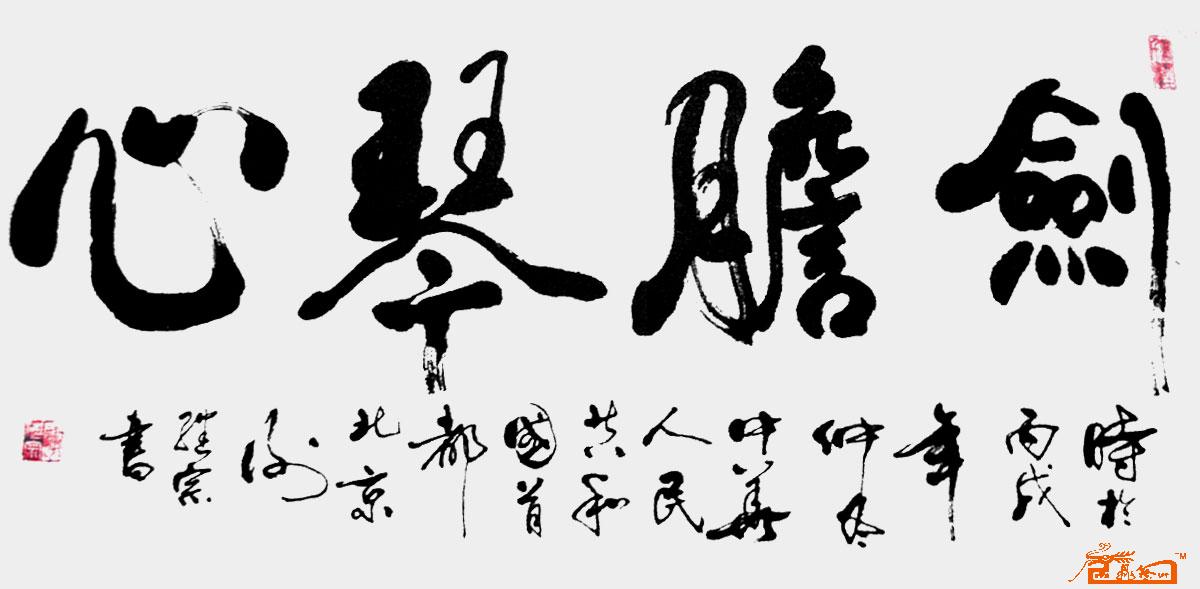 劍膽琴心
時於丙戌年仲冬中華人民共和國首都北京謝繼宗書